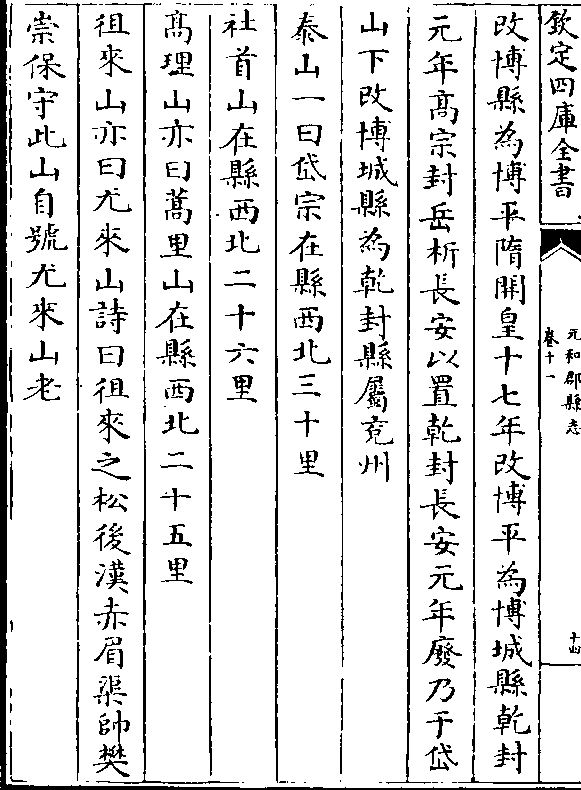 欽定四庫全書
元和郡縣志
卷十一
十四
改博縣為博平隋開皇十七年改博平為博城縣乾封
元年髙宗封岳析長安以置乾封長安元年廢乃于岱
山下改博城縣為乾封縣屬兖州
泰山一曰岱宗在縣西北三十里
社首山在縣西北二十六里
髙理山亦曰蒿里山在縣西北二十五里
徂來山亦曰尤來山詩曰徂來之松後漢赤眉渠帥樊
崇保守此山自號尤來山老